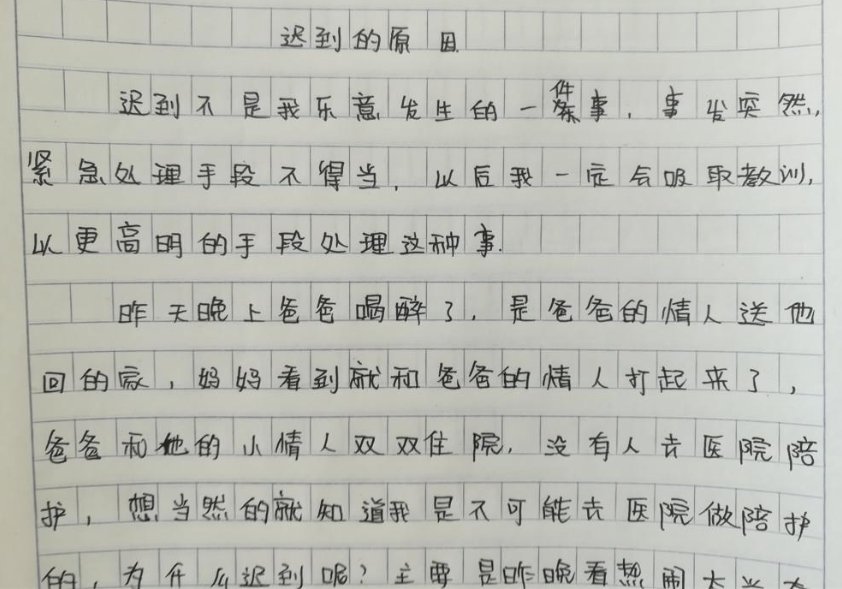 迟到的原因
迟到不是我乐意发生的一件事,事发突然,
紧急处理手段不得当,以后我一定会吸取教训,
以更高明的手段处理这种事.
昨天晚上爸爸喝醉了,是爸爸的情人送他
回的家,妈妈看到就和爸爸的情人打起来了,
爸爸和他的小情人双双住院,没有人去医院陪
护,想当然的就知道我是不可能去医院做陪护
的,为什么迟到呢?主要是昨晚看热闹太